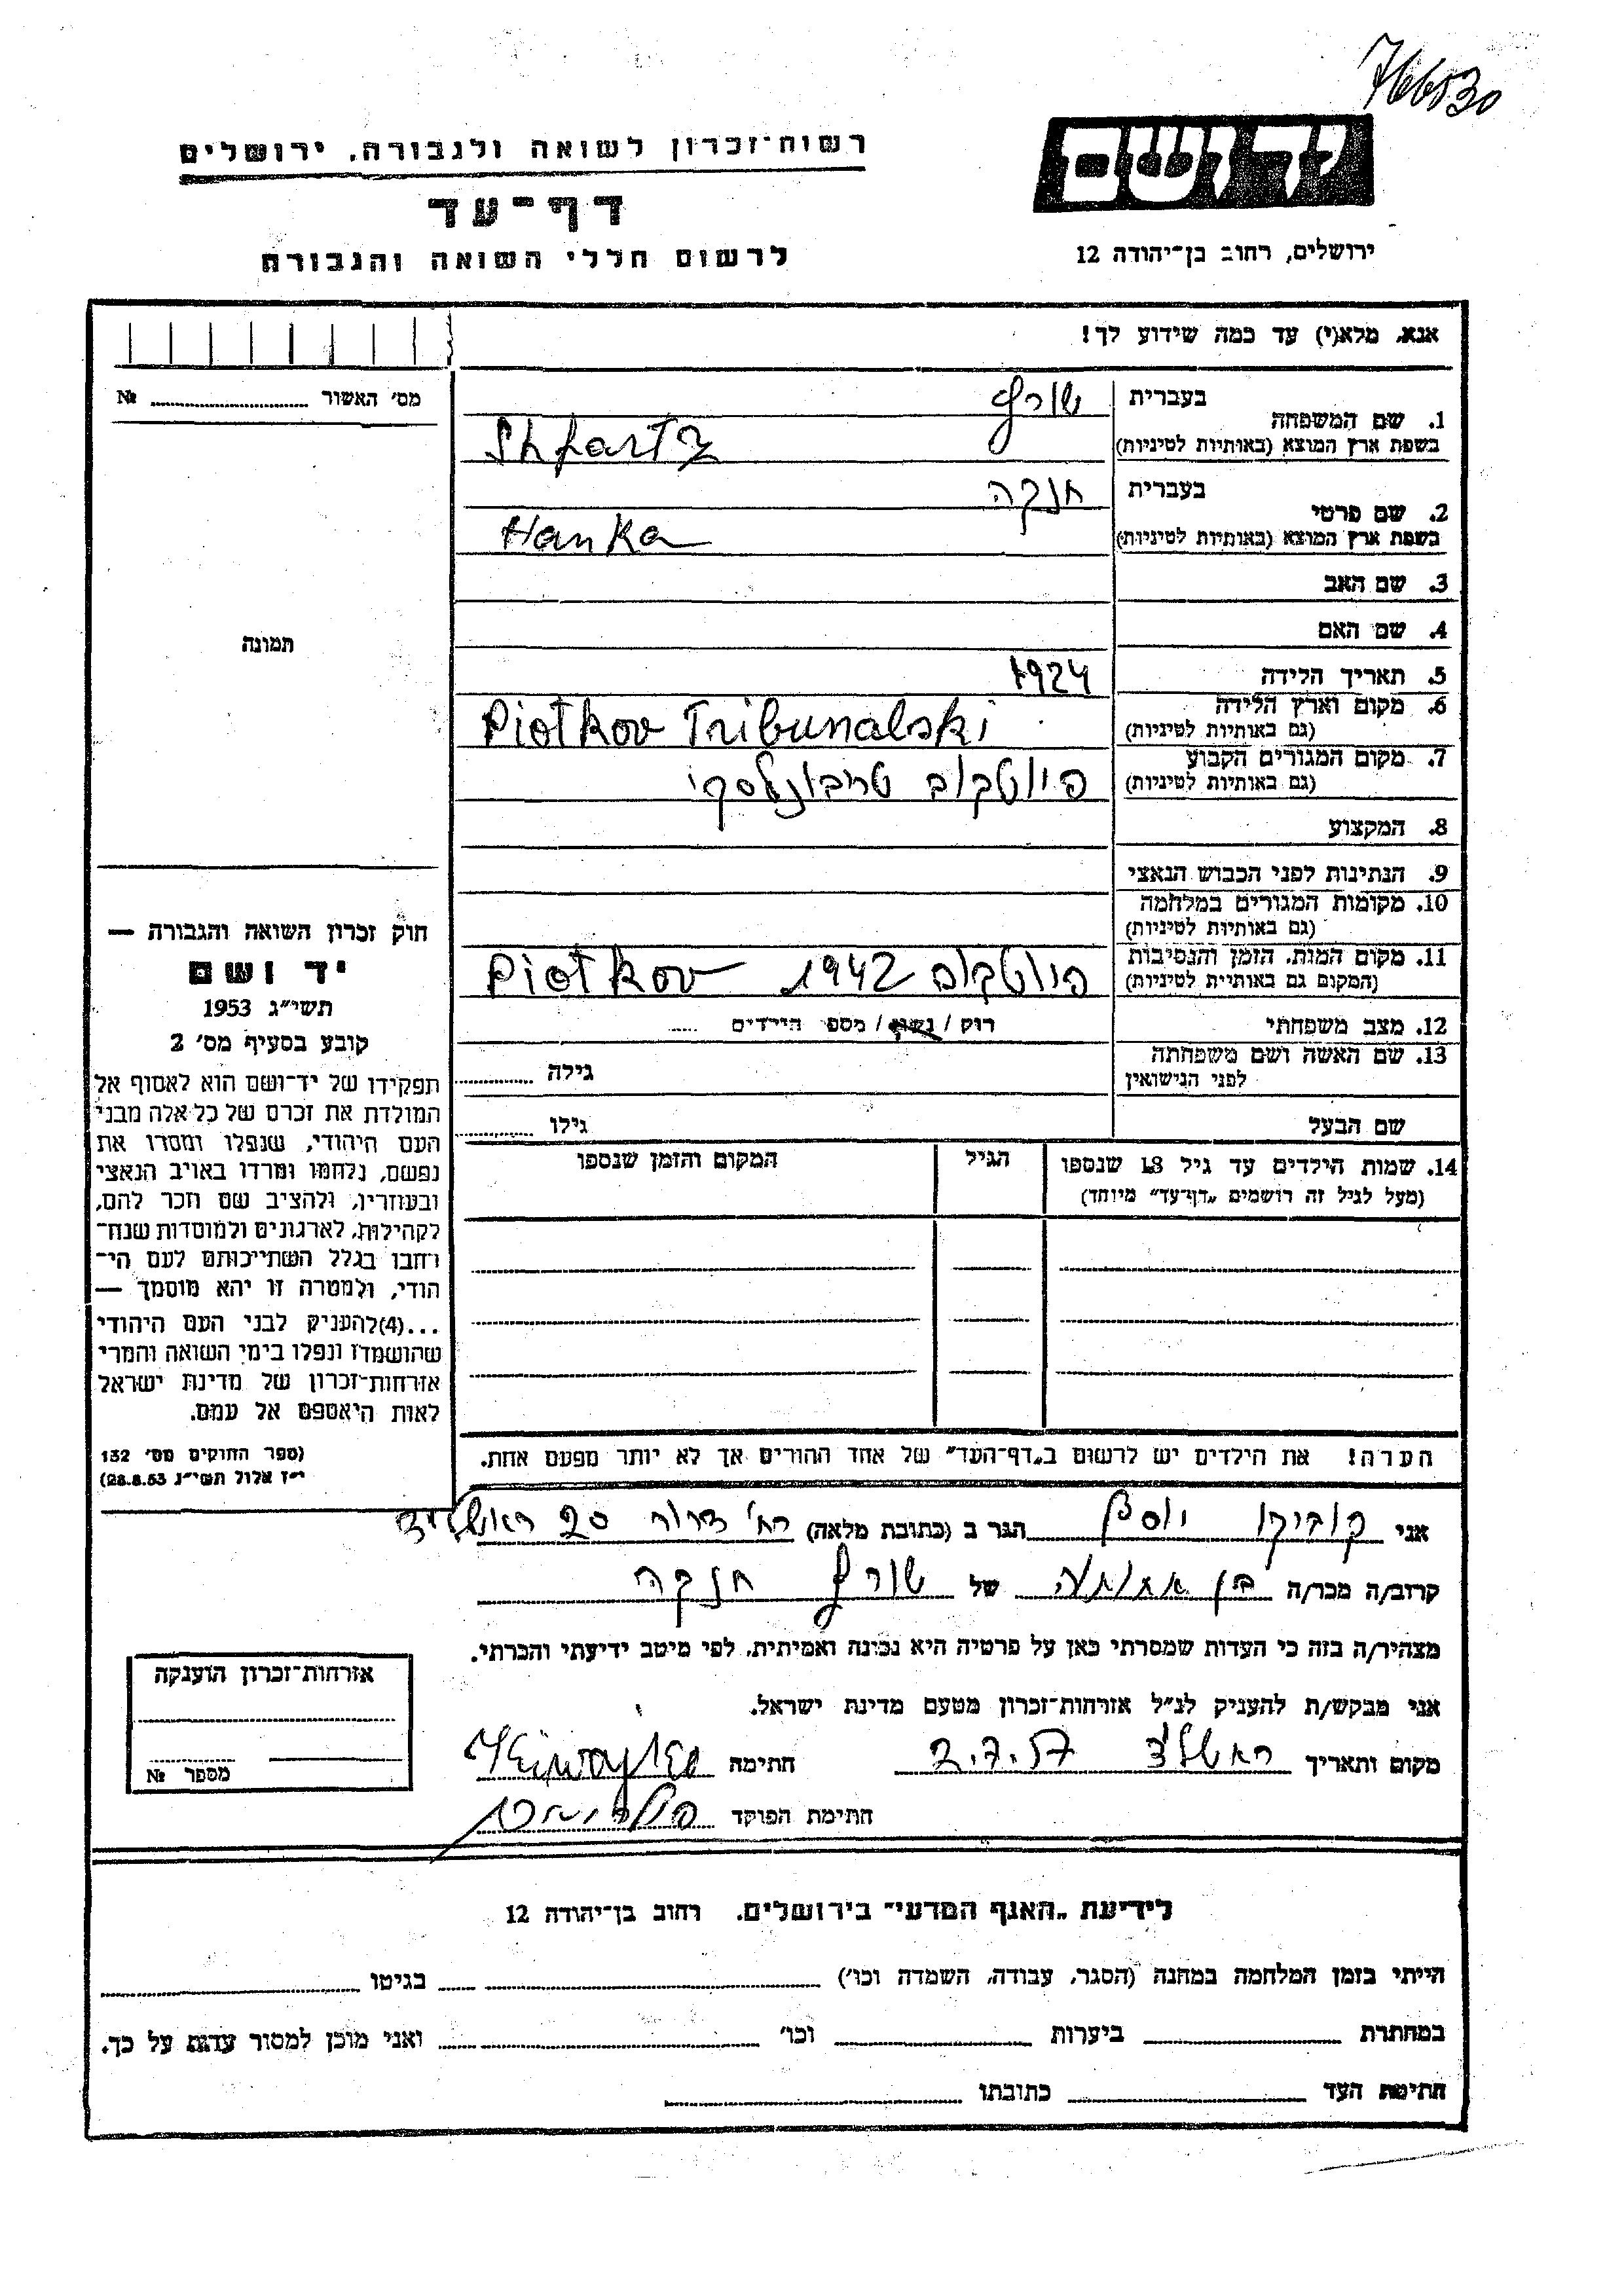 766530
רשות־זכרון לשואה ולגבורה, ירושלים
יד ושם
דף־עד
לרשום חללי השואה והגבורה
ירושלים, רחוב בן־יהודה 12
אנא, מלא(י) עד כמה שידוע לך!
מס׳ האשור № ..........
תמונה
1. שם המשפחה
בעברית
שורץ
בשפת ארץ המוצא (באותיות לטיניות)
Shfartz
2. שם פרטי
בעברית
חנקה
בשפת ארץ המוצא (באותיות לטיניות)
Hanka
3. שם האב
4. שם האם
5. תאריך הלידה 1924
6. מקום וארץ הלידה
(גם באותיות לטיניות)
Piotkov Tribunalski
7. מקום המגורים הקבוע
(גם באותיות לטיניות)
פיוטקוב טריבונלסקי
8. המקצוע
9. הנתינות לפני הכבוש הנאצי
10. מקומות המגורים במלחמה
(גם באותיות לטיניות)
11. מקום המות, הזמן והנסיבות
(המקום גם באותיית לטיניות)
פיוטקוב 1942 Piotkov
12. מצב משפחתי רוק / נשוי / מספר הילדים .....
13. שם האשה ושם משפחתה
לפני הנישואין
גילה ..........
שם הבעל גילו ..........
14. שמות הילדים עד גיל 18 שנספו
(מעל לגיל זה רושמים „דף־עד״ מיוחד)
הגיל
המקום והזמן שנספו
הערה! את הילדים יש לרשום ב„דף־העד״ של אחד ההורים אך לא יותר מפעם אחת.
חוק זכרון השואה והגבורה —
יד ושם
תשי״ג 1953
קובע בסעיף מס׳ 2
תפקידו של יד־ושם הוא לאסוף אל
המולדת את זכרם של כל אלה מבני
העם היהודי, שנפלו ומסרו את
נפשם, נלחמו ומרדו באויב הנאצי
ובעוזריו, ולהציב שם וזכר להם,
לקהילות, לארגונים ולמוסדות שנח־
רבו בגלל השתייכותם לעם הי־
הודי, ולמטרה זו יהא מוסמך —
...(4)להעניק לבני העם היהודי
שהושמדו ונפלו בימי השואה והמרי
אזרחות־זכרון של מדינת ישראל
לאות היאספם אל עמם.
(ספר החוקים מס׳ 132
י״ז אלול תשי״ג 28.8.53)
אני קוביקו יוסף הגר ב (כתובת מלאה) רח׳ דרור 20 ראשל״צ
קרוב/ה מכר/ה של שורץ חנקה
מצהיר/ה בזה כי העדות שמסרתי כאן על פרטיה היא נכונה ואמיתית, לפי מיטב ידיעתי והכרתי.
אני מבקש/ת להעניק לנ״ל אזרחות־זכרון מטעם מדינת ישראל.
מקום ותאריך ראשל״צ 2.7.57 חתימה
חתימת הפוקד
אזרחות־זכרון הוענקה
מספר №
לידיעת „האגף המדעי״ בירושלים, רחוב בן־יהודה 12
הייתי בזמן המלחמה במחנה (הסגר, עבודה, השמדה וכו׳) בגיטו
במחתרת ביערות וכו׳ ואני מוכן למסור עדות על כך.
חתימת העד כתובתו